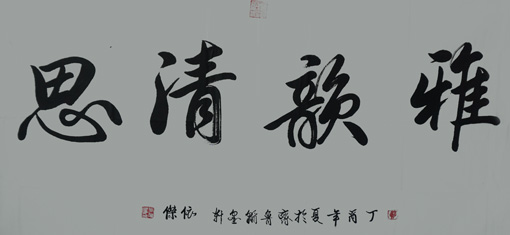 雅韵清思
丁酉年夏於齊魯翰墨軒依傑